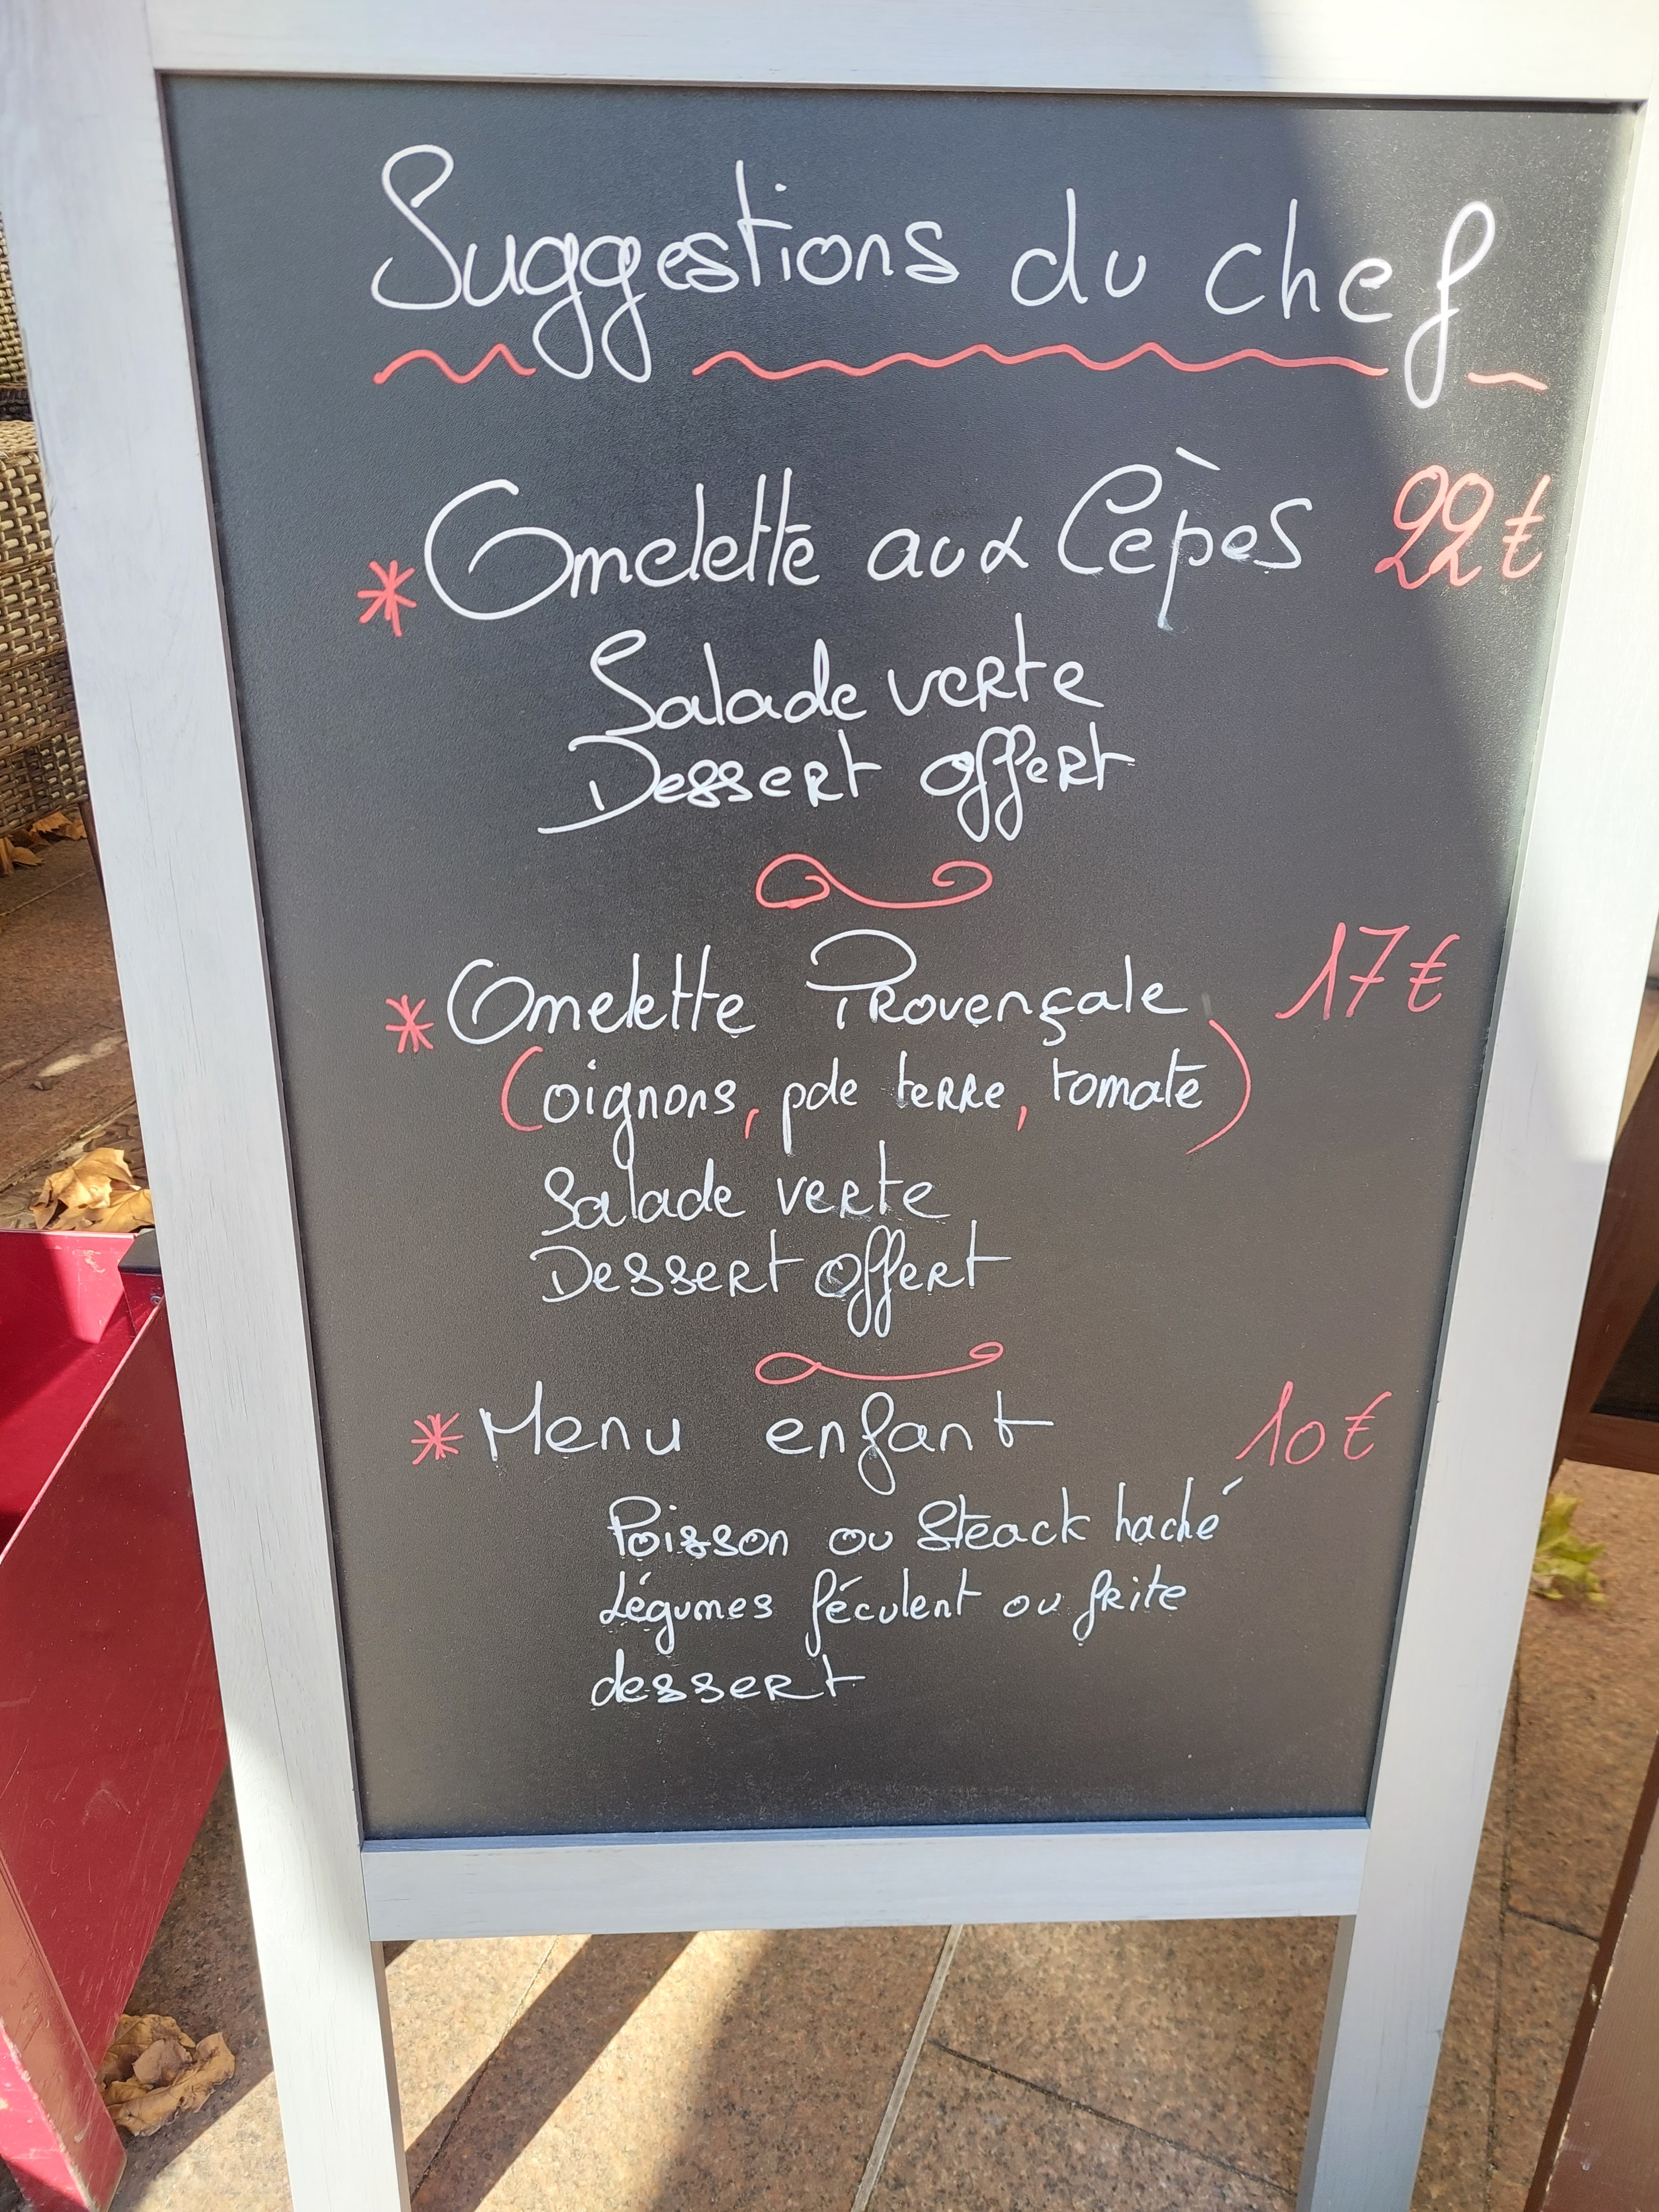 Suggestions du chef
* Omelette aux Cèpes 22€
Salade verte
Dessert offert
* Omelette Provençale 17€
(oignons, pde terre, tomate)
Salade verte
Dessert offert
* Menu enfant 10€
Poisson ou Steack haché
Légumes féculent ou frite
dessert